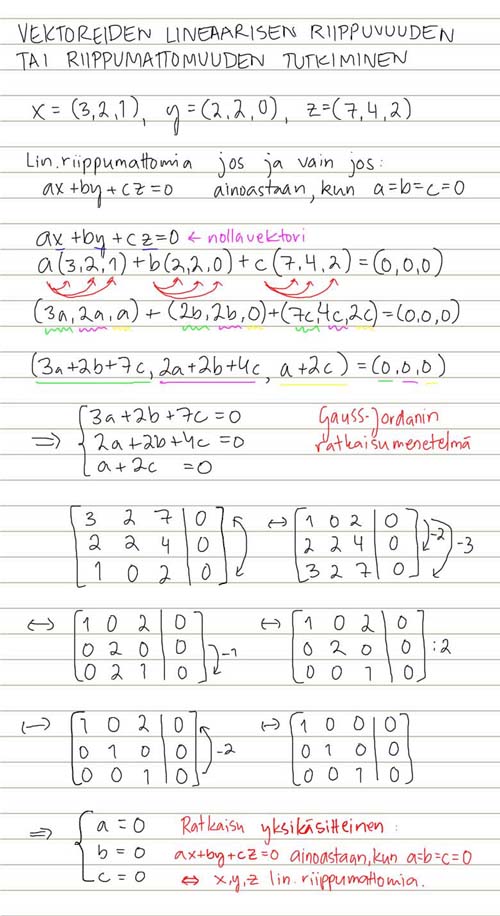 VEKTOREIDEN LINEAARISEN RIIPPUVUUDEN
TAI RIIPPUMATTOMUUDEN TUTKIMINEN
x = (3,2,1), y = (2,2,0), z=(7,4,2)
Lin.riippumattomia jos ja vain jos:
ax+by+cz=0 ainoastaan, kun a=b=c=0
ax+by+cz=0 ← nollavektori
a(3,2,1)+b(2,2,0)+c(7,4,2)=(0,0,0)
(3a,2a,a)+(2b,2b,0)+(7c,4c,2c)=(0,0,0)
(3a+2b+7c, 2a+2b+4c, a+2c)=(0,0,0)
3a+2b+7c=0 Gauss-Jordanin
⇒ 2a+2b+4c=0 ratkaisumenetelmä
a+2c =0
3 2 7 | 0 ↔ 1 0 2 | 0
2 2 4 | 0 2 2 4 | 0 -2 -3
1 0 2 | 0 3 2 7 | 0
↔ 1 0 2 | 0 ↔ 1 0 2 | 0
0 2 0 | 0 0 2 0 | 0 :2
0 2 1 | 0 -1 0 0 1 | 0
↔ 1 0 2 | 0 ↔ 1 0 0 | 0
0 1 0 | 0 -2 0 1 0 | 0
0 0 1 | 0 0 0 1 | 0
a = 0 Ratkaisu yksikäsitteinen:
⇒ b = 0 ax+by+cz=0 ainoastaan, kun a=b=c=0
c = 0 ⇔ x,y,z lin.riippumattomia.